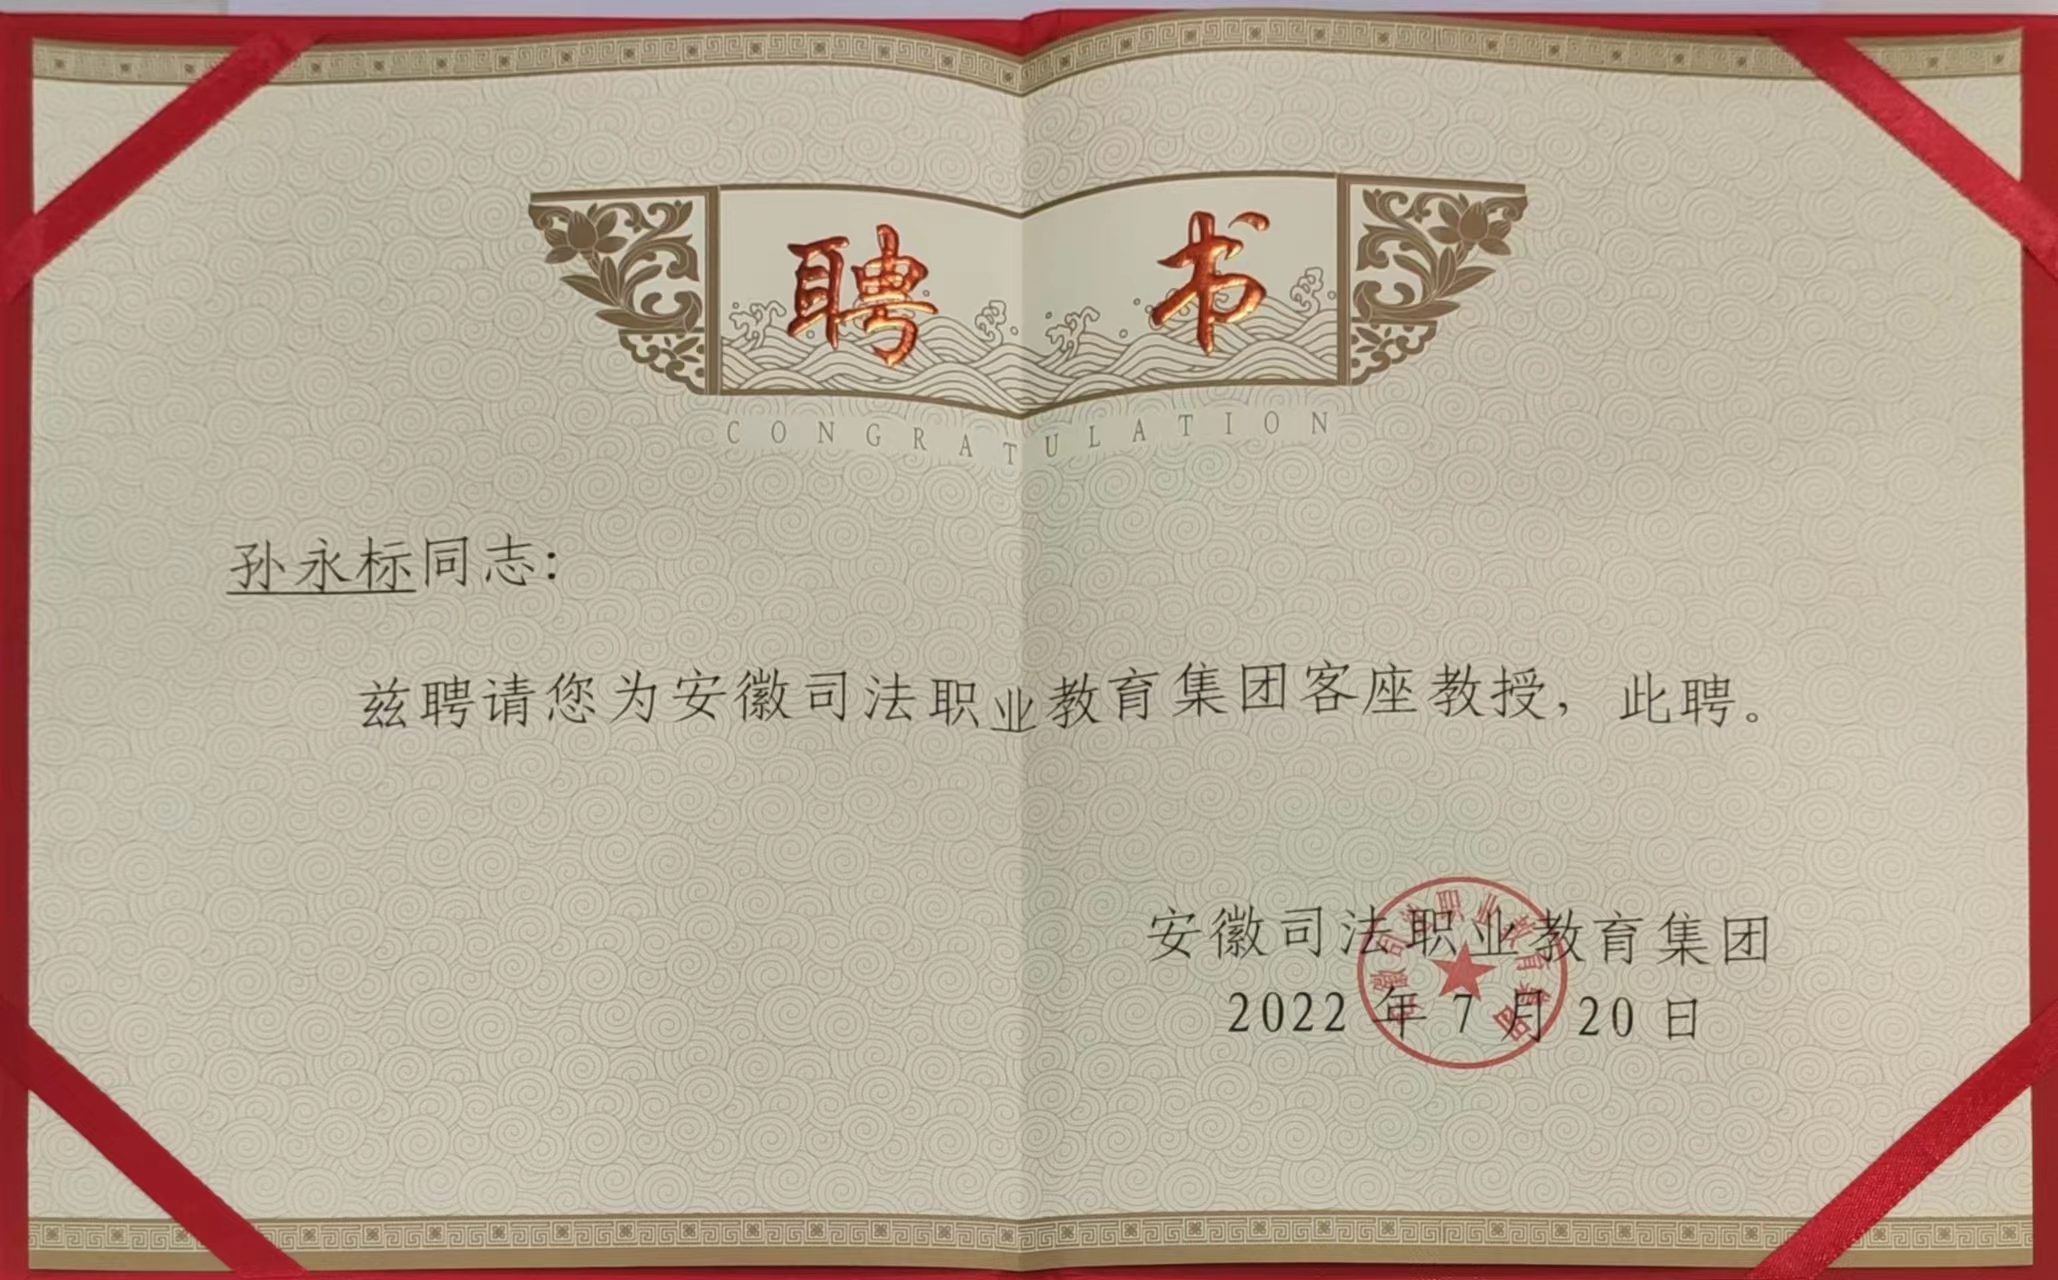 聘 书
CONGRATULATION
孙永标同志：
兹聘请您为安徽司法职业教育集团客座教授，此聘。
安徽司法职业教育集团
2022 年 7 月 20 日
安徽司法职业教育集团